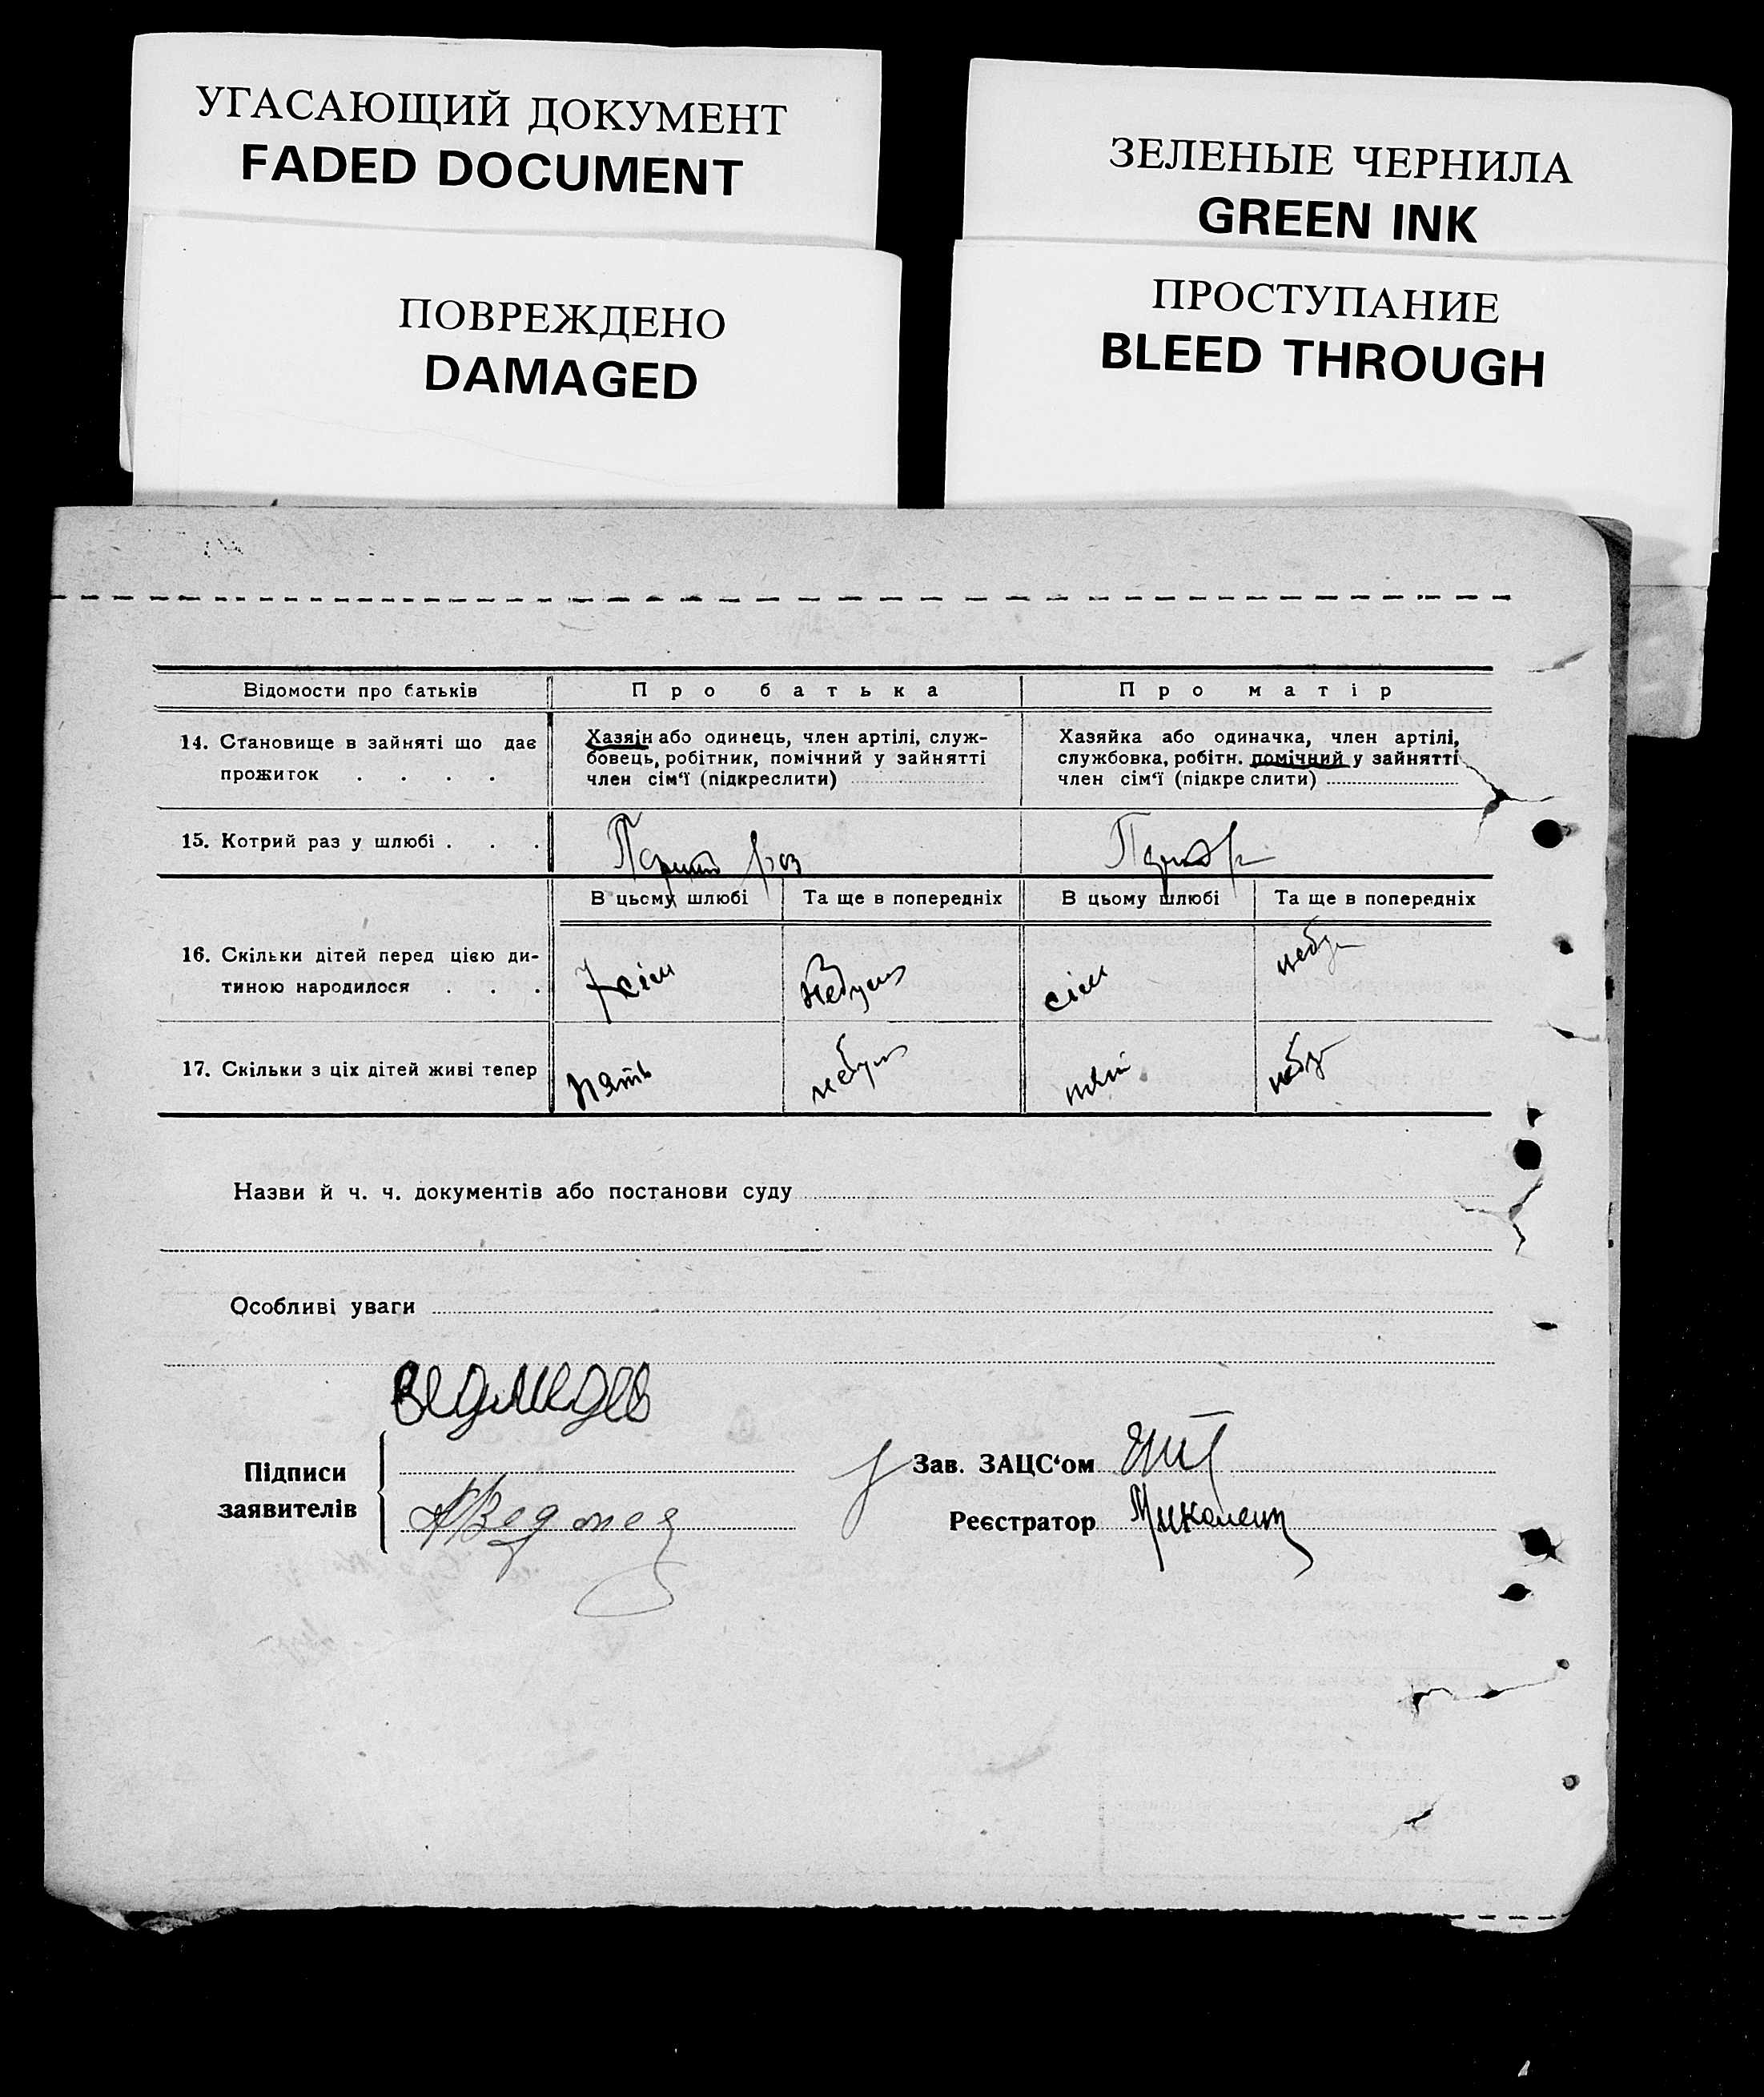 УГАСАЮЩИЙ ДОКУМЕНТ
FADED DOCUMENT
ПОВРЕЖДЕНО
DAMAGED
ЗЕЛЕНЫЕ ЧЕРНИЛА
GREEN INK
ПРОСТУПАНИЕ
BLEED THROUGH
Відомости про батьків
Про батька
Про матір
14. Становище в зайняті що дає
прожиток . . . .
Хазяін або одинець, член артілі, служ-
бовець, робітник, помічний у зайнятті
член сім‘ї (підкреслити)
Хазяйка або одиначка, член артілі,
службовка, робітн. помічний у зайнятті
член сім‘ї (підкре слити)
15. Котрий раз у шлюбі . . .
раз
В цьому шлюбі Та ще в попередніх В цьому шлюбі Та ще в попередніх
16. Скільки дітей перед цією ди-
тиною народилося . . .
7 сім
сім
17. Скільки з ціх дітей живі тепер
Пять
Назви й ч. ч. документів або постанови суду
Особливі уваги
Підписи
заявителів
Зав. ЗАЦС‘ом
Реєстратор